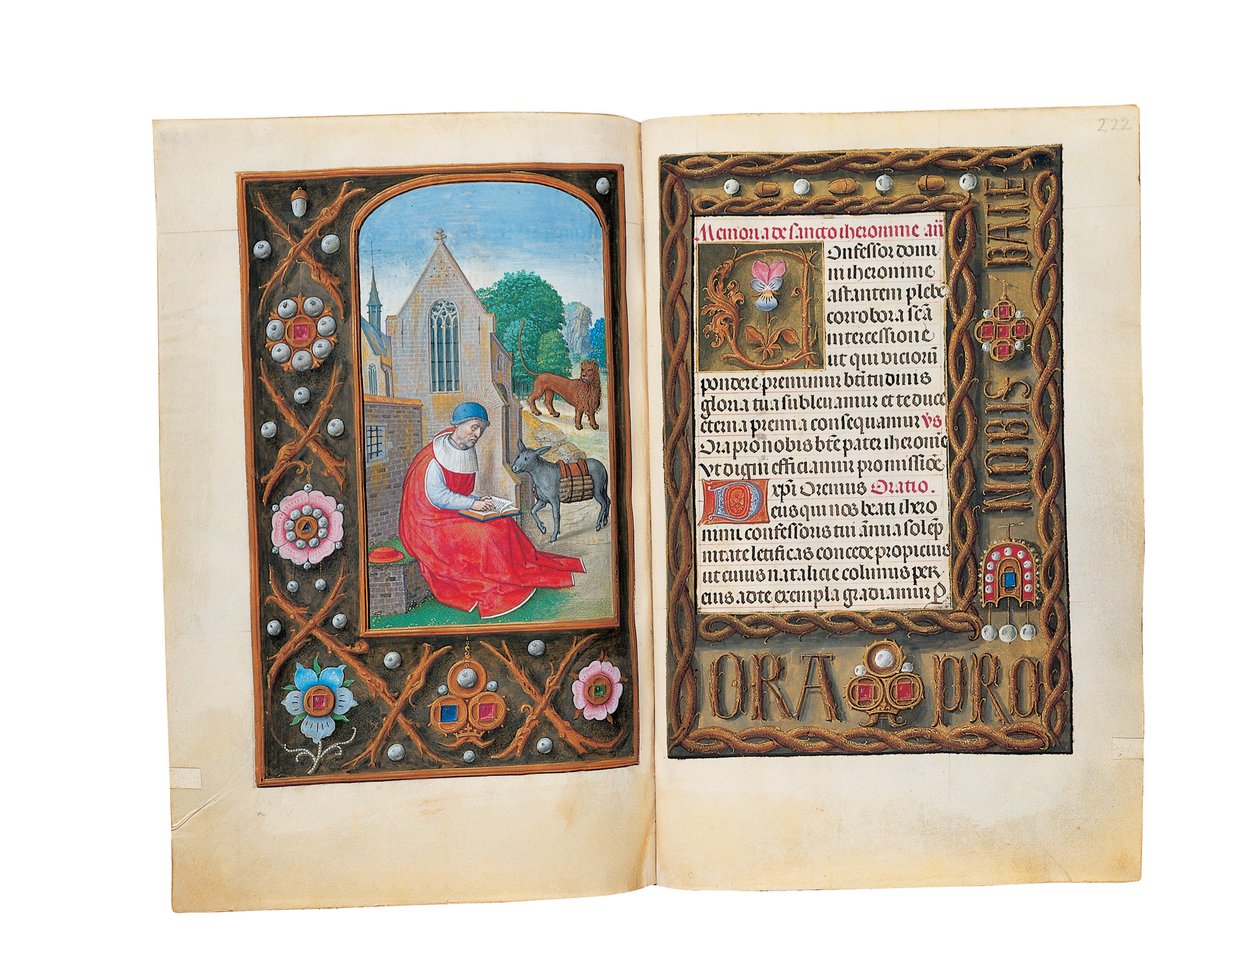 222
Memoria de sancto iheronime añ
Confessor domi
ni iheronime
astantem plebē
corrobora scā
intercessione
ut qui vicioꝝ
pondere premimur bt̄itudinis
gloria tua subleuamur et te duce
eterna premia consequamur v̄s
Ora pro nobis bt̄e pater iheronīe
Vt digni efficiamur promissiōē
xp̄i Oremus Oratio.
Deus qui nos beati ihero
nimi confessoris tui ānua solēp
nitate letificas concede propicius
ut cuius natalicie colimus per
eius ad te exempla gradiamur P
ORA PRO
NOBIS BATE